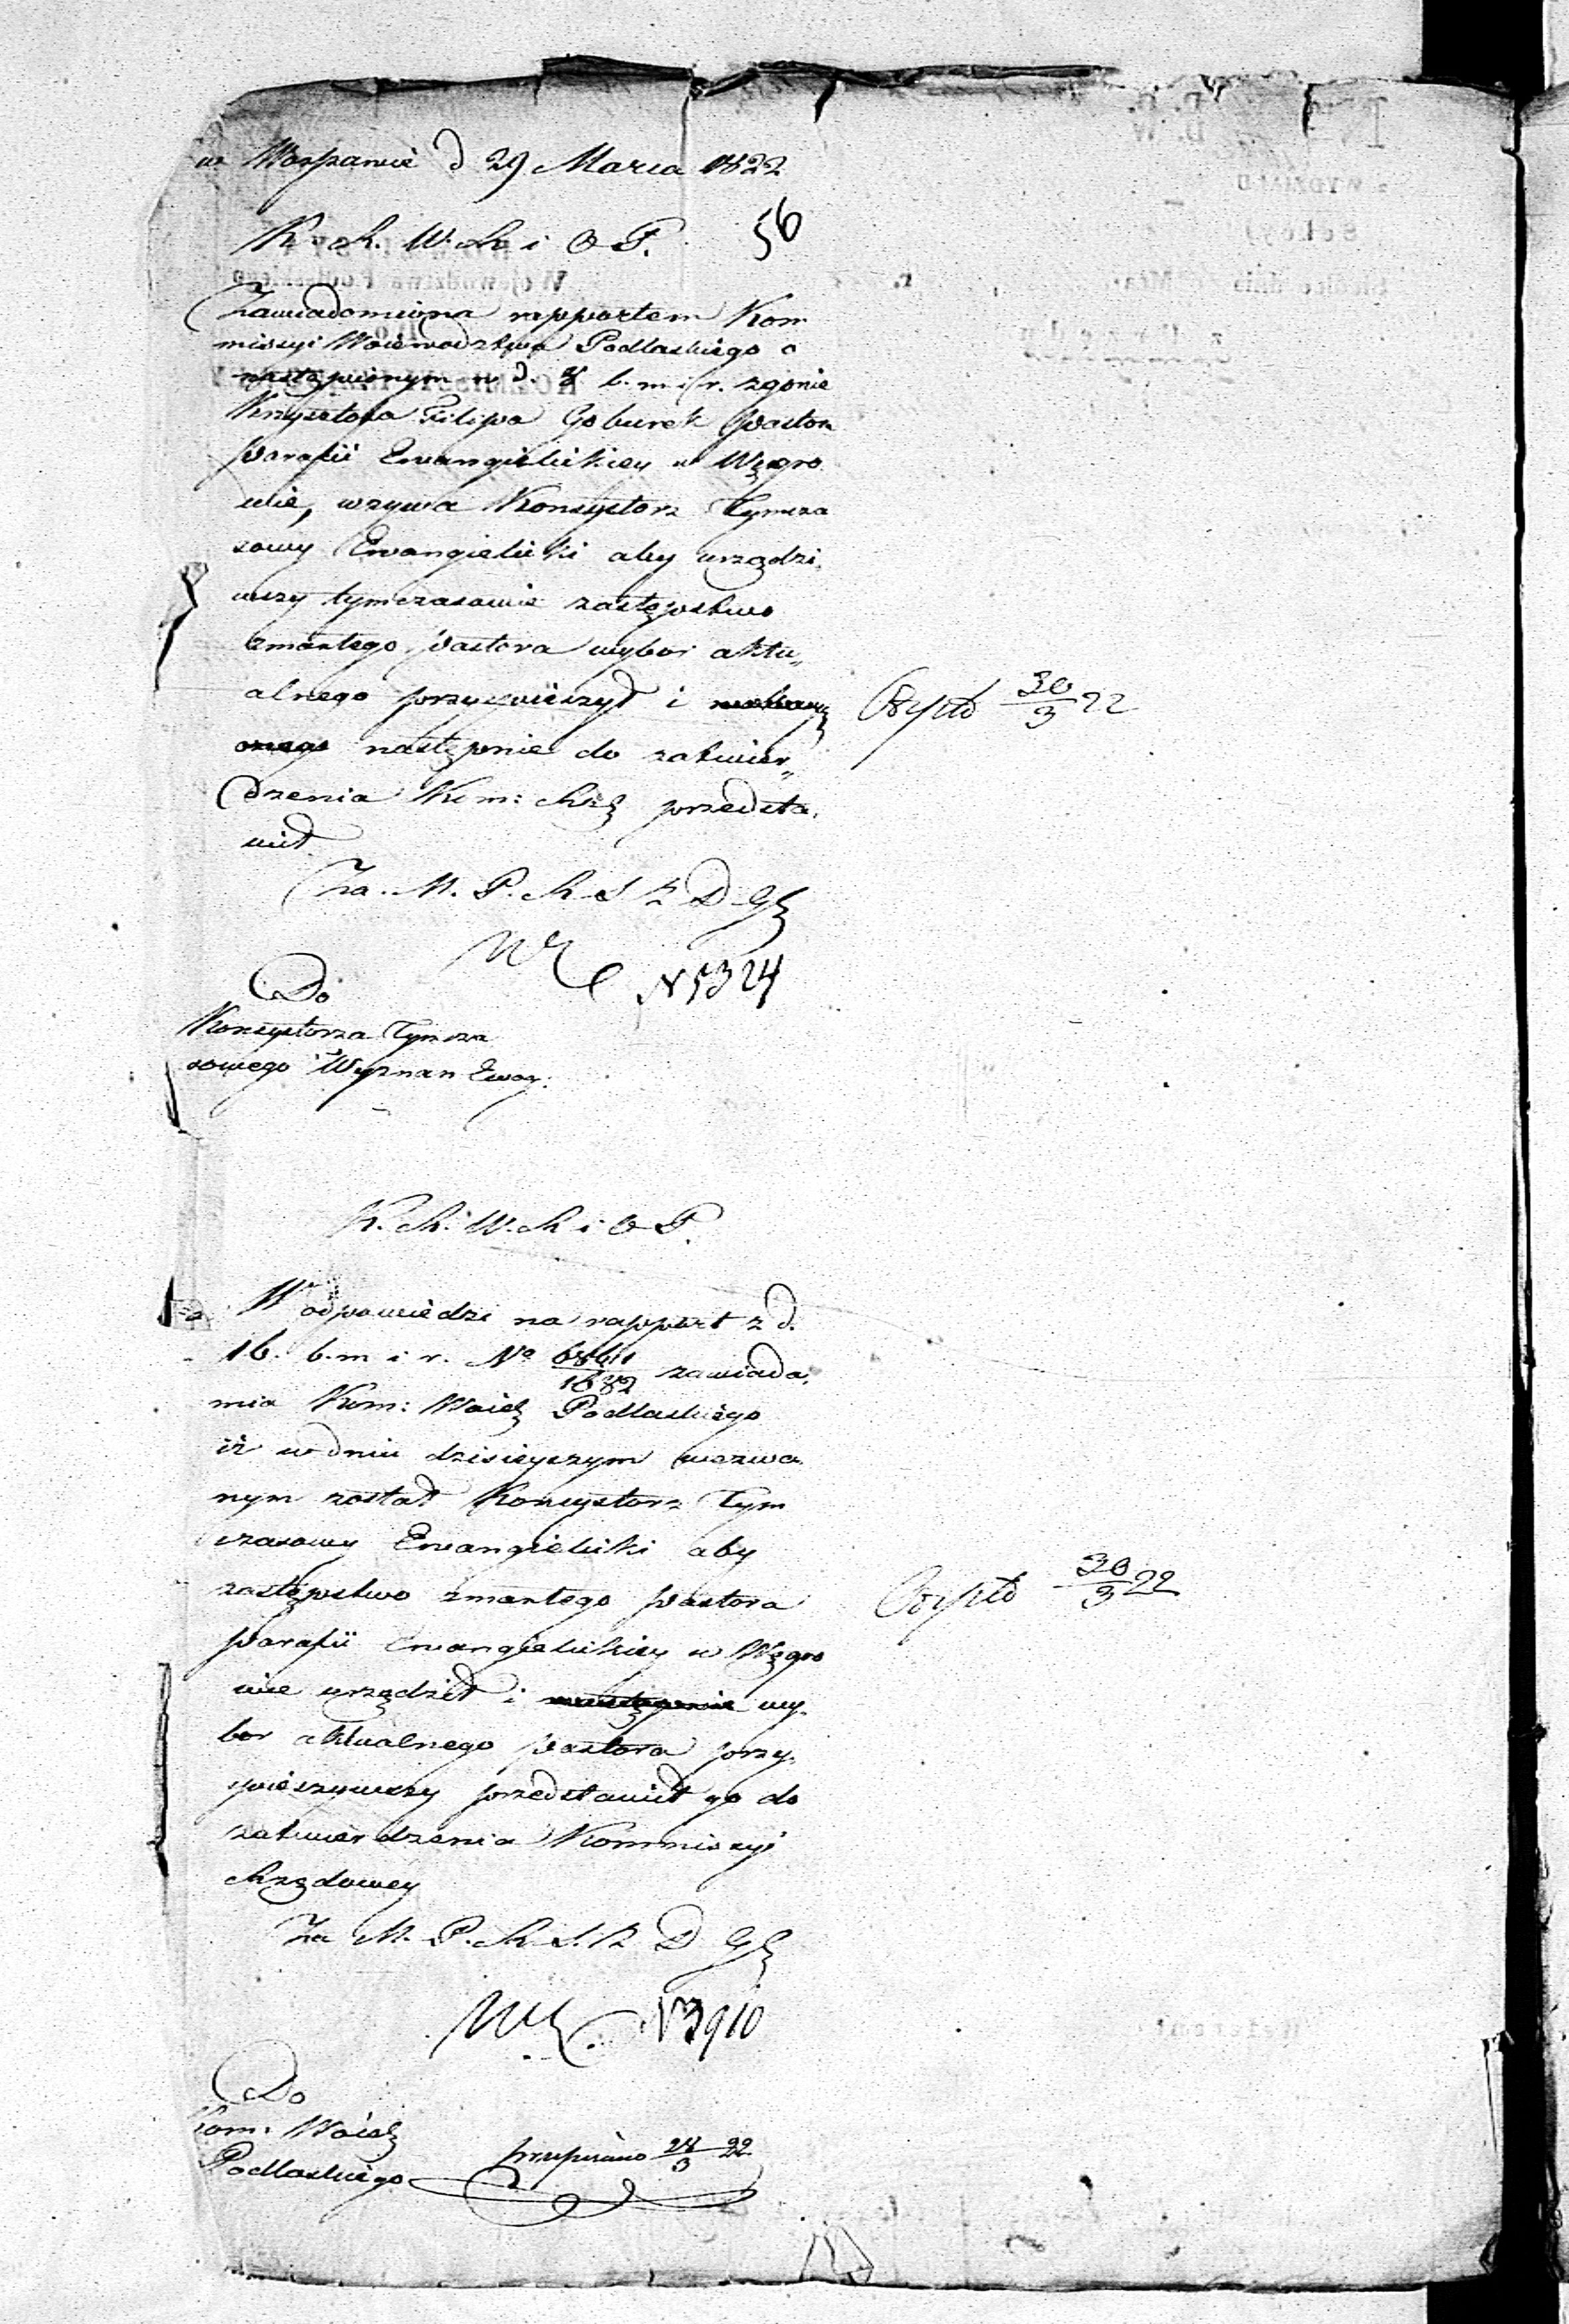 w Warszawie d 29 Marca 1822
56
K. R. W. R. i O. P.
Zawiadomiona rapportem Kom
missyi Woiewodztwa Podlaskiego o
nastąpionym w d. 8 b. m. i r. zgonie
Krzysztofa Filipa Goburek Pastora
Parafii Ewangielickiey w Węgro
wie, wzywa Konsystorz Tymcza
sowy Ewangielicki aby urządzi,
wszy tymczasowie zastępstwo
zmarłego Pastora wybor aktu„
alnego przyspieszył i
onego następnie do zatwier„
dzenia Kom: Rząd przedsta,
wił.
Odpisd 30/3 22
Za. M. P. R. S. K D Gl
N 5324
Do
Konsystorza Tymcza
sowego Wyznan Ewan:
K. R. W. R i O. P.
W odpowiedzi na rapport z d.
16. b. m i r. No 68611/1682 zawiada,
mia Kom: Woiew Podlaskiego
iż w dniu dzisieyszym wezwa
nym został Konsystorz Tym
czasowy Ewangielicki aby
zastępstwo zmarłego Pastora
Parafii Ewangielickiey w Węgro
wie urządził i następnie wy,
bor aktualnego Pastora przy,
spieszywszy przedstawił go do
zatwierdzenia Kommissyi
Rządowey
30/3 22
Za M. P. R. S. K D Gl
N 3910
Do
Kom: Woiew
Podlaskiego
przepisano 28/3 22